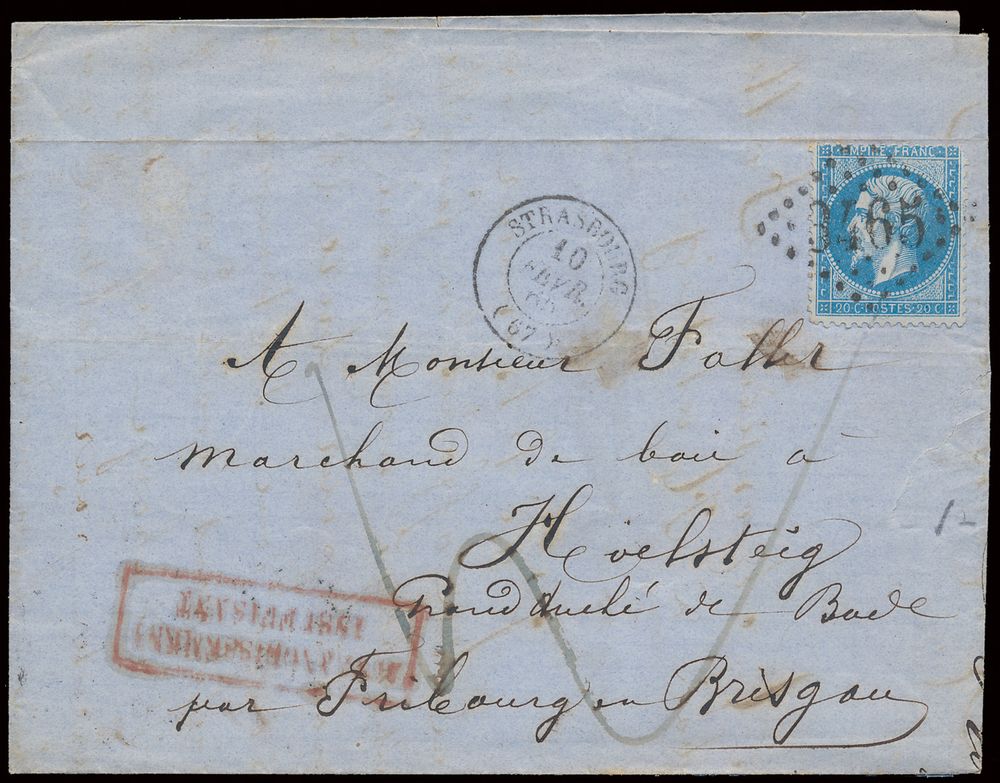 EMPIRE FRANC
3465
20 C POSTES 20 C
STRASBOURG
10
FEVR.
(67)
A Monsieur Faller
Marchand de bois à
Hoelsteig
Grand Duché de Bade
par Fribourg en Brisgau
INSUFFISANT